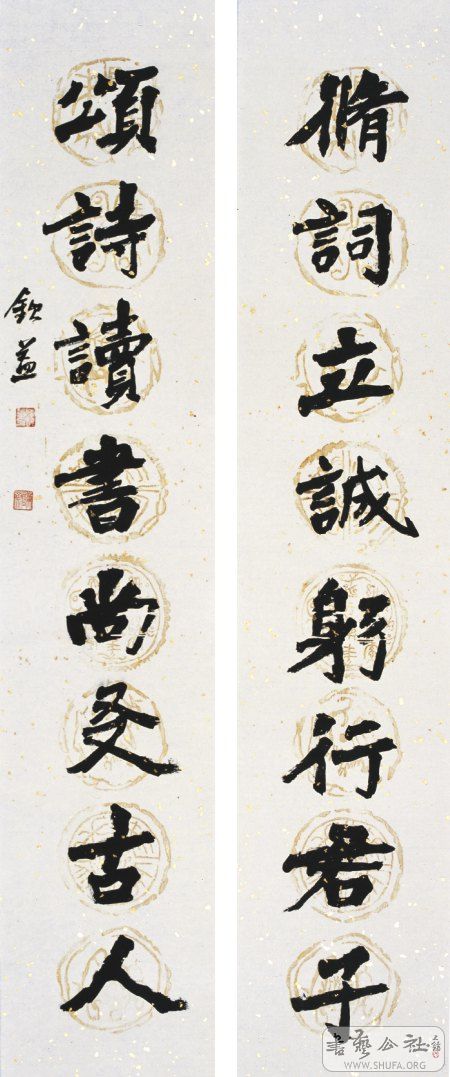 脩詞立誠躬行君子
頌詩讀書尚友古人
欽益
書藝公社
WWW.SHUFA.ORG